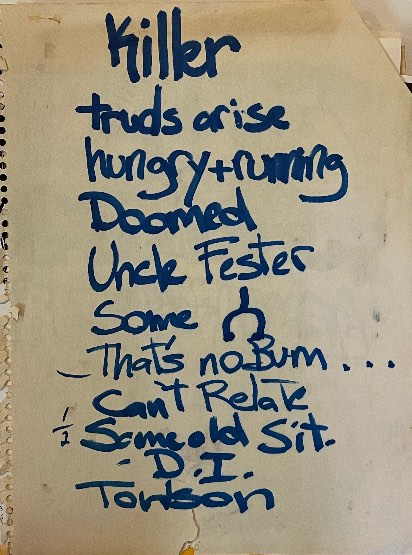 Killer
truds arise
hungry + running
Doomed
Uncle Fester
Some
That's no Bum ...
Can't Relate
1/2 Same old Sit.
- D.I.
Tonson